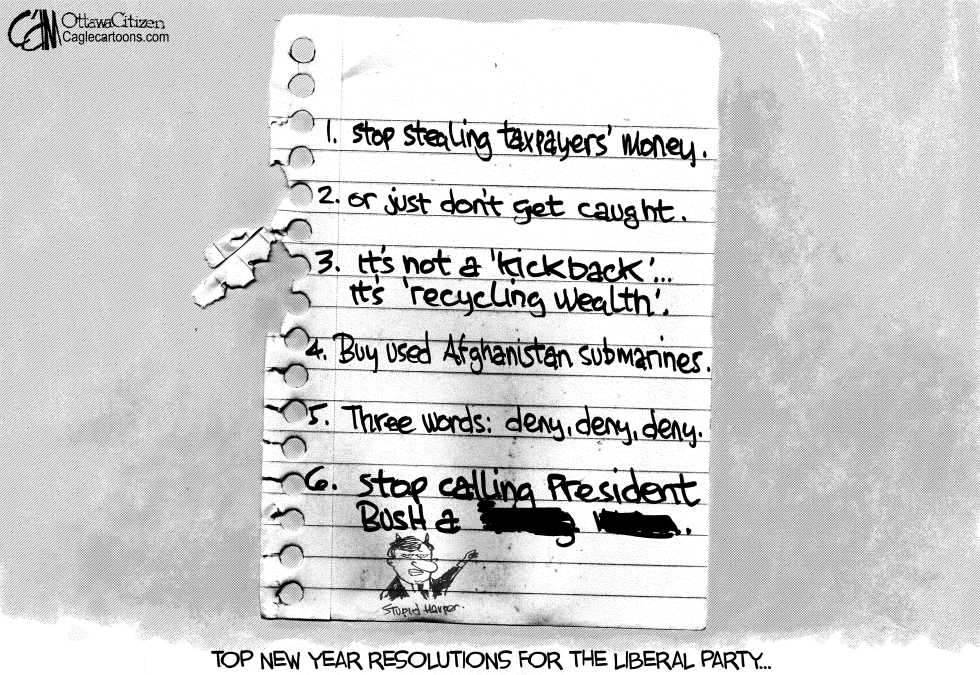 CAM
OttawaCitizen
Caglecartoons.com
1. stop stealing taxpayers' money.
2. or just don't get caught.
3. it's not a 'kickback'...
it's 'recycling wealth'.
4. Buy used Afghanistan submarines.
5. Three words: deny, deny, deny.
6. stop calling President
Bush a
Stupid Harper.
TOP NEW YEAR RESOLUTIONS FOR THE LIBERAL PARTY...